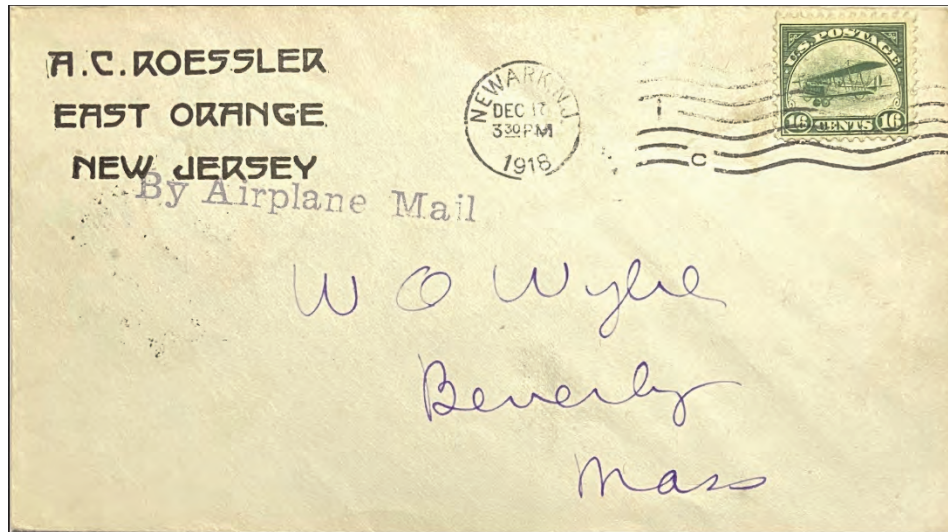 A.C. ROESSLER
EAST ORANGE
NEW JERSEY
By Airplane Mail
NEWARK, N.J.
DEC 17
3 30 PM
1918
1
C
U.S. POSTAGE
16 CENTS 16
W O Wylie
Beverly
Mass